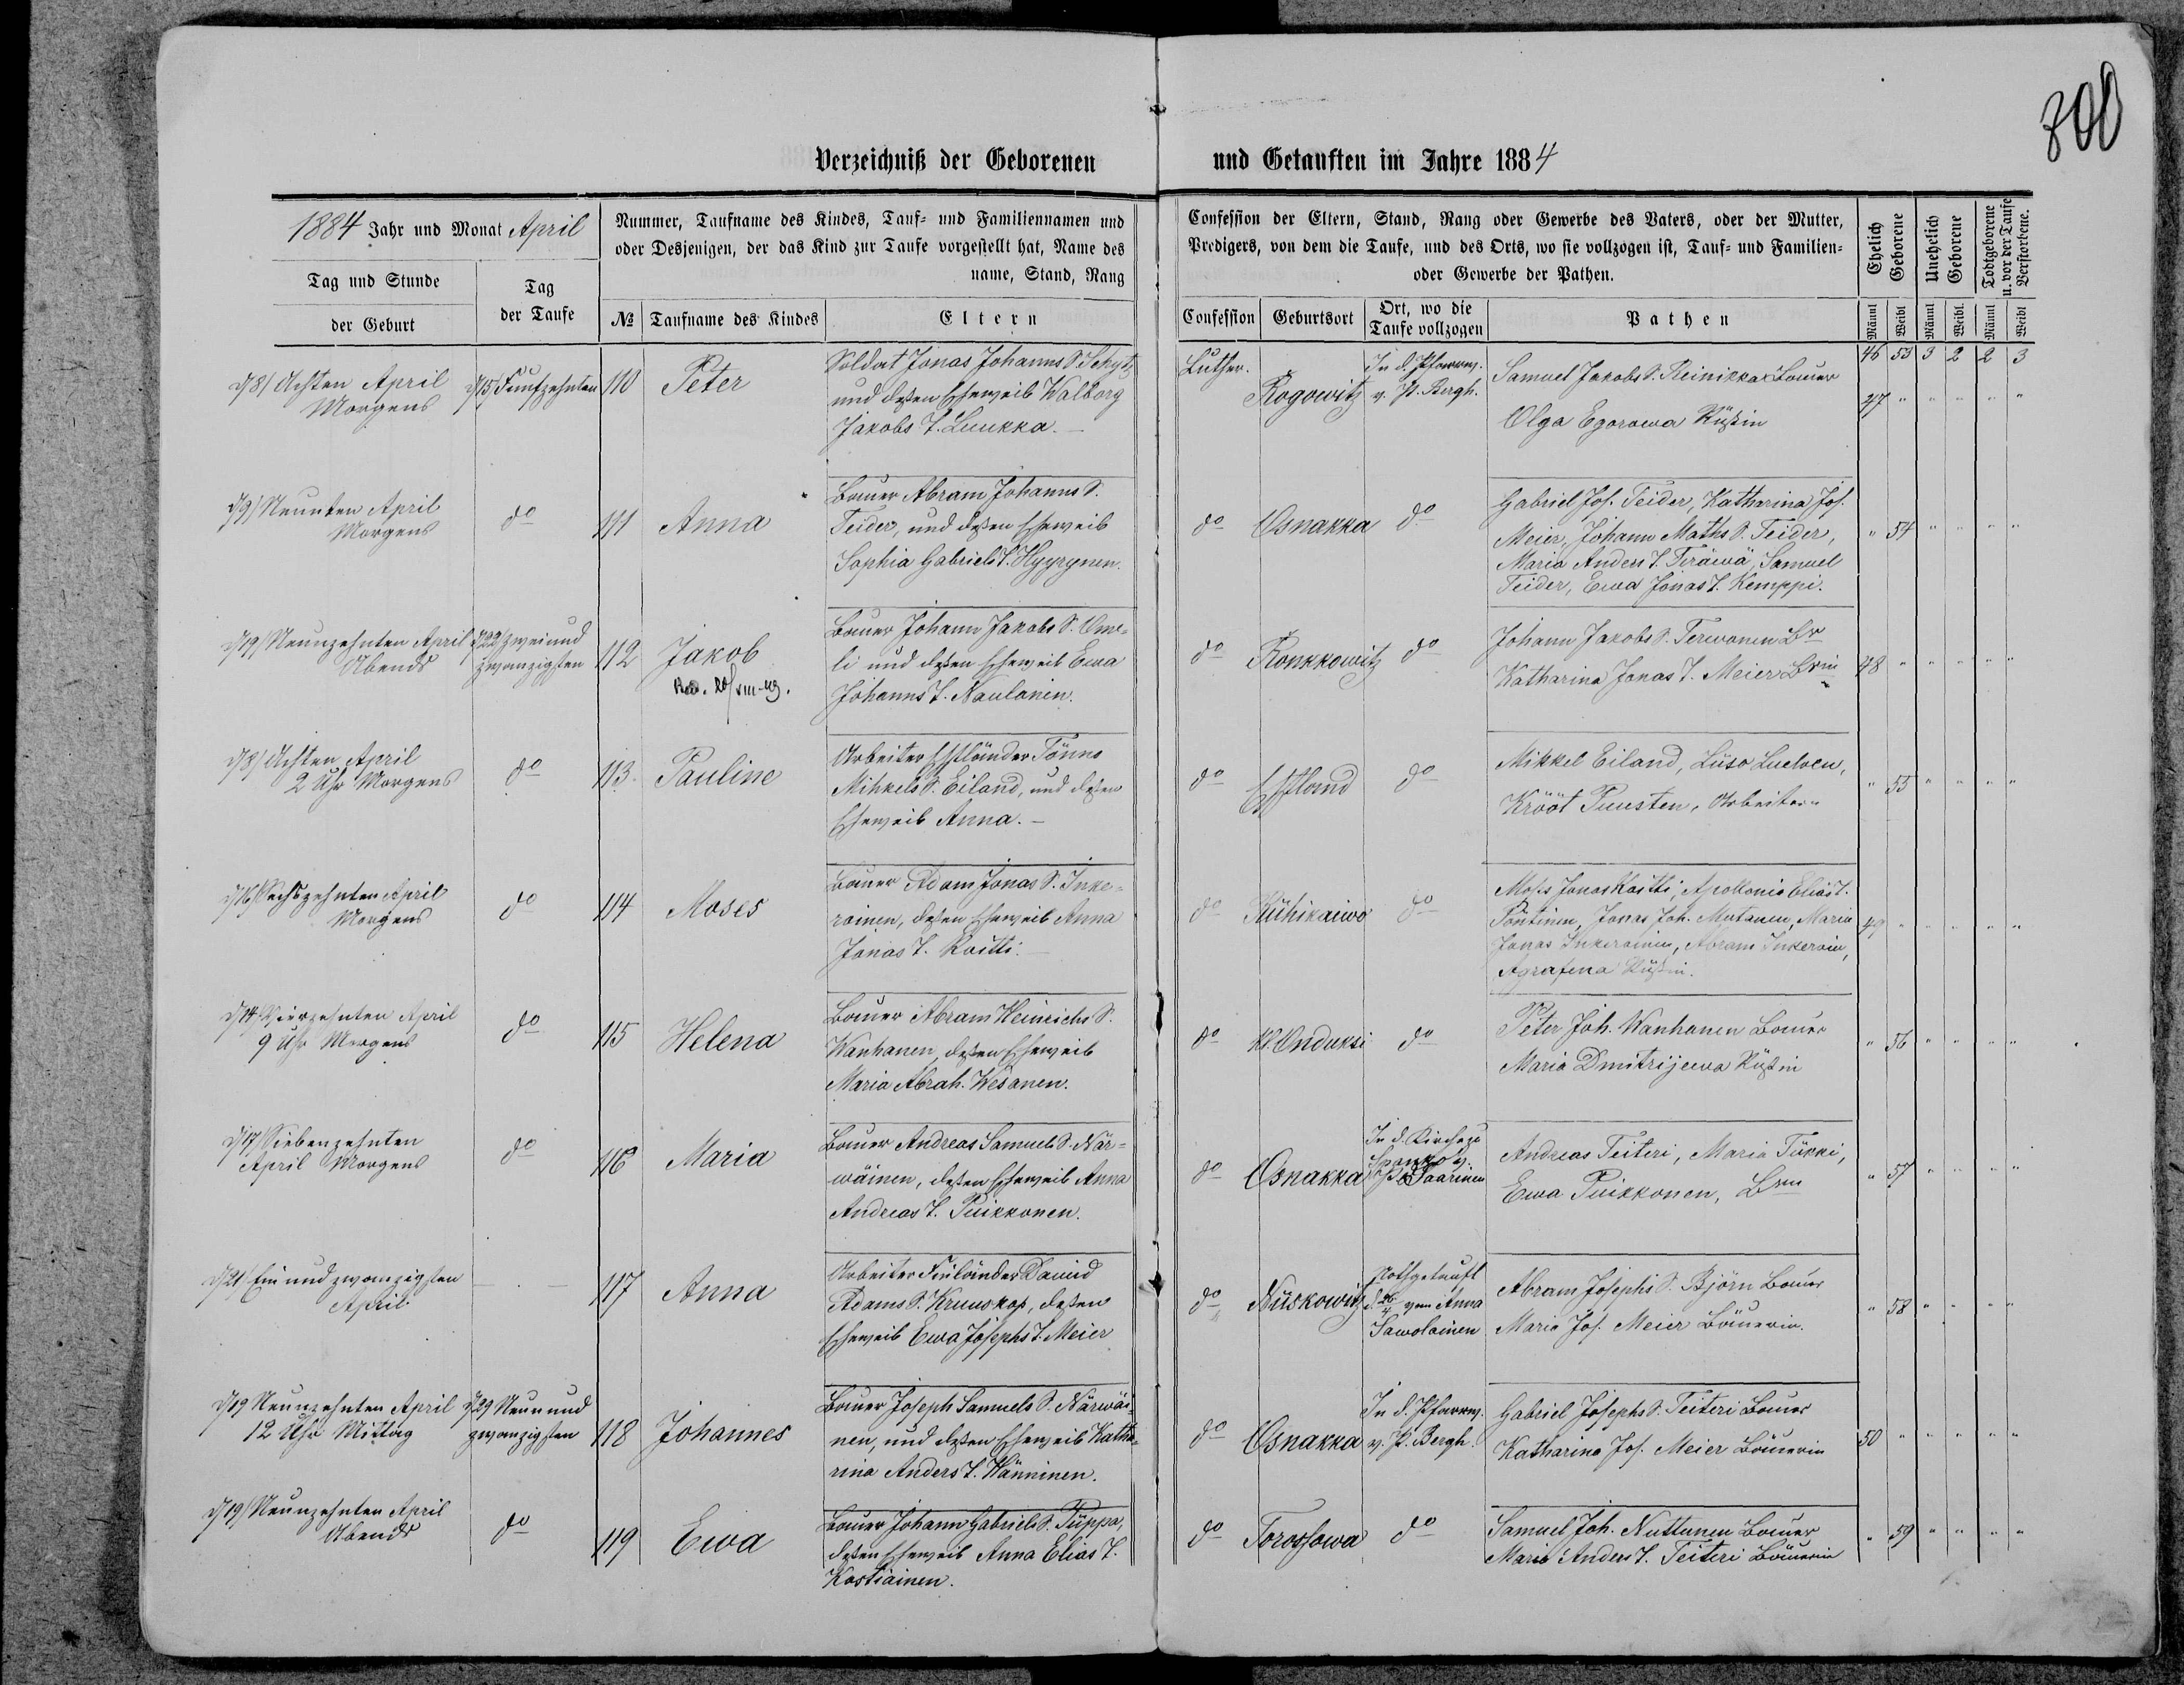 300
Verzeichniß der Geborenen und Getauften im Jahre 1884
1884 Jahr und Monat April
Tag und Stunde
der Geburt
Tag
der Taufe
Nummer, Taufname des Kindes, Tauf- und Familiennamen und
oder Desjenigen, der das Kind zur Taufe vorgestellt hat, Name des
name, Stand, Rang
№ Taufname des Kindes Eltern
Confession der Eltern, Stand, Rang oder Gewerbe des Vaters, oder der Mutter,
Predigers, von dem die Taufe, und des Orts, wo sie vollzogen ist, Tauf- und Familien-
oder Gewerbe der Pathen.
Confession Geburtsort Ort, wo die
Taufe vollzogen
Pathen
Ehelich
Geborene
Unehelich
Geborene
Todtgeborene
u. vor der Taufe
Verstorbene.
Männl Weibl Männl Weibl. Männl Weibl
46 53 3 2 2 3
d/8/ Achten April
Morgens
d/15/ Fünfzehnten
110 Peter
Soldat Jonas Johanns S. Schytz
und deßen Eheweib Walborg
Jakobs T. Luukka.
Luther.
Rogowitz
In d. Pfarrw.
v. P. Bergh.
Samuel Jakobs S. Reinikka Bauer
Olga Egorowa Rußin
47 " " " " "
d/9/ Neunten April
Morgens
do
111 Anna
Bauer Abram Johanns S.
Teider, und deßen Eheweib
Sophia Gabriels T. Hyyrynen.
do Osnakka do
Gabriel Jos. Teider, Katharina Jos.
Meier, Johann Maths S. Teider,
Maria Anders T. Teräwä, Samuel
Teider, Ewa Jonas T. Kemppi.
" 54 " " " "
d/19/ Neunzehnten April
Abends
d/22/ Zwei und
zwanzigsten
112 Jakob
Bauer Johann Jakobs S.
li und deßen Eheweib Ewa
Johanns T. Naulanen.
do Ronkkowitz do
Johann Jakobs S. Terwonen Br
Katharina Jonas T. Meier Brin
48 " " " " "
d/8/ Achten April
2 Uhr Morgens
do
113. Pauline
Arbeiter Estländer Tönno
Mihkels S. Eiland, und deßen
Eheweib Anna. –
do Estland do
Mikkel Eiland, Liiso
Krööt Puusten, Arbeiter
" 55 " " " "
d/16/ Sechszehnten April
Morgens
do
114 Moses
Bauer Adam Jonas S. Inke-
roinen, deßen Eheweib Anna
Jonas T. Koitti.
do do
Moses Jonas Koitti, Apollonia Elias T.
Pöntinen, Jonas Joh. Mutanen, Maria
Jonas Inkeroinen, Abram Inkeroin,
Agrafena Rußin.
49 " " " " "
d/14 Vierzehnten April
9 Uhr Morgens
do
115 Helena
Bauer Abram Heinrichs S.
Wanhanen, deßen Eheweib
Maria Abrah. Wesanen.
do Kl. Onduksi do
Peter Joh. Wanhanen Bauer
Maria Dmitrijewa Rußin
" 56 " " " "
d/17/ Siebenzehnten
April Morgens
do
116 Maria
Bauer Andreas Samuels S. När-
wäinen, deßen Eheweib Anna
Andreas T. Puikkonen.
do Osnakka
In d. Kirche zu
Spanko v.
P. Saarinen
Andreas Teiteri, Maria Tükki,
Ewa Puikkonen, Brin
" 57 " " " "
d/21/ Ein und zwanzigsten
April.
117 Anna
Arbeiter Finländer David
Adams S. Kruuskop, deßen
Eheweib Ewa Josephs T. Meier
do Nuskowitz
Nothgetauft
d. 26/4 von Anna
Sawolainen
Abram Josephs S. Björn Bauer
Maria Jos. Meier Bäuerin.
" 58 " " " "
d/19 Neunzehnten April
12 Uhr Mittag
d/29 Neun und
zwanzigsten
118 Johannes
Bauer Joseph Samuels S. Närwäi-
nen, und deßen Eheweib Katha-
rina Anders T. Wänninen.
do Osnakka
In d. Pfarrw.
v. P. Bergh.
Gabriel Josephs S. Teiteri Bauer
Katharina Jos. Meier Bäuerin
50 " " " " "
d/19/ Neunzehnten April
Abends
do
119 Ewa
Bauer Johann Gabriels S. Püppo,
deßen Eheweib Anna Elias T.
Kostiainen.
do Torossowa do
Samuel Joh. Nuttunen Bauer
Maria Anders T. Teiteri Bäuerin
" 59 " " " "